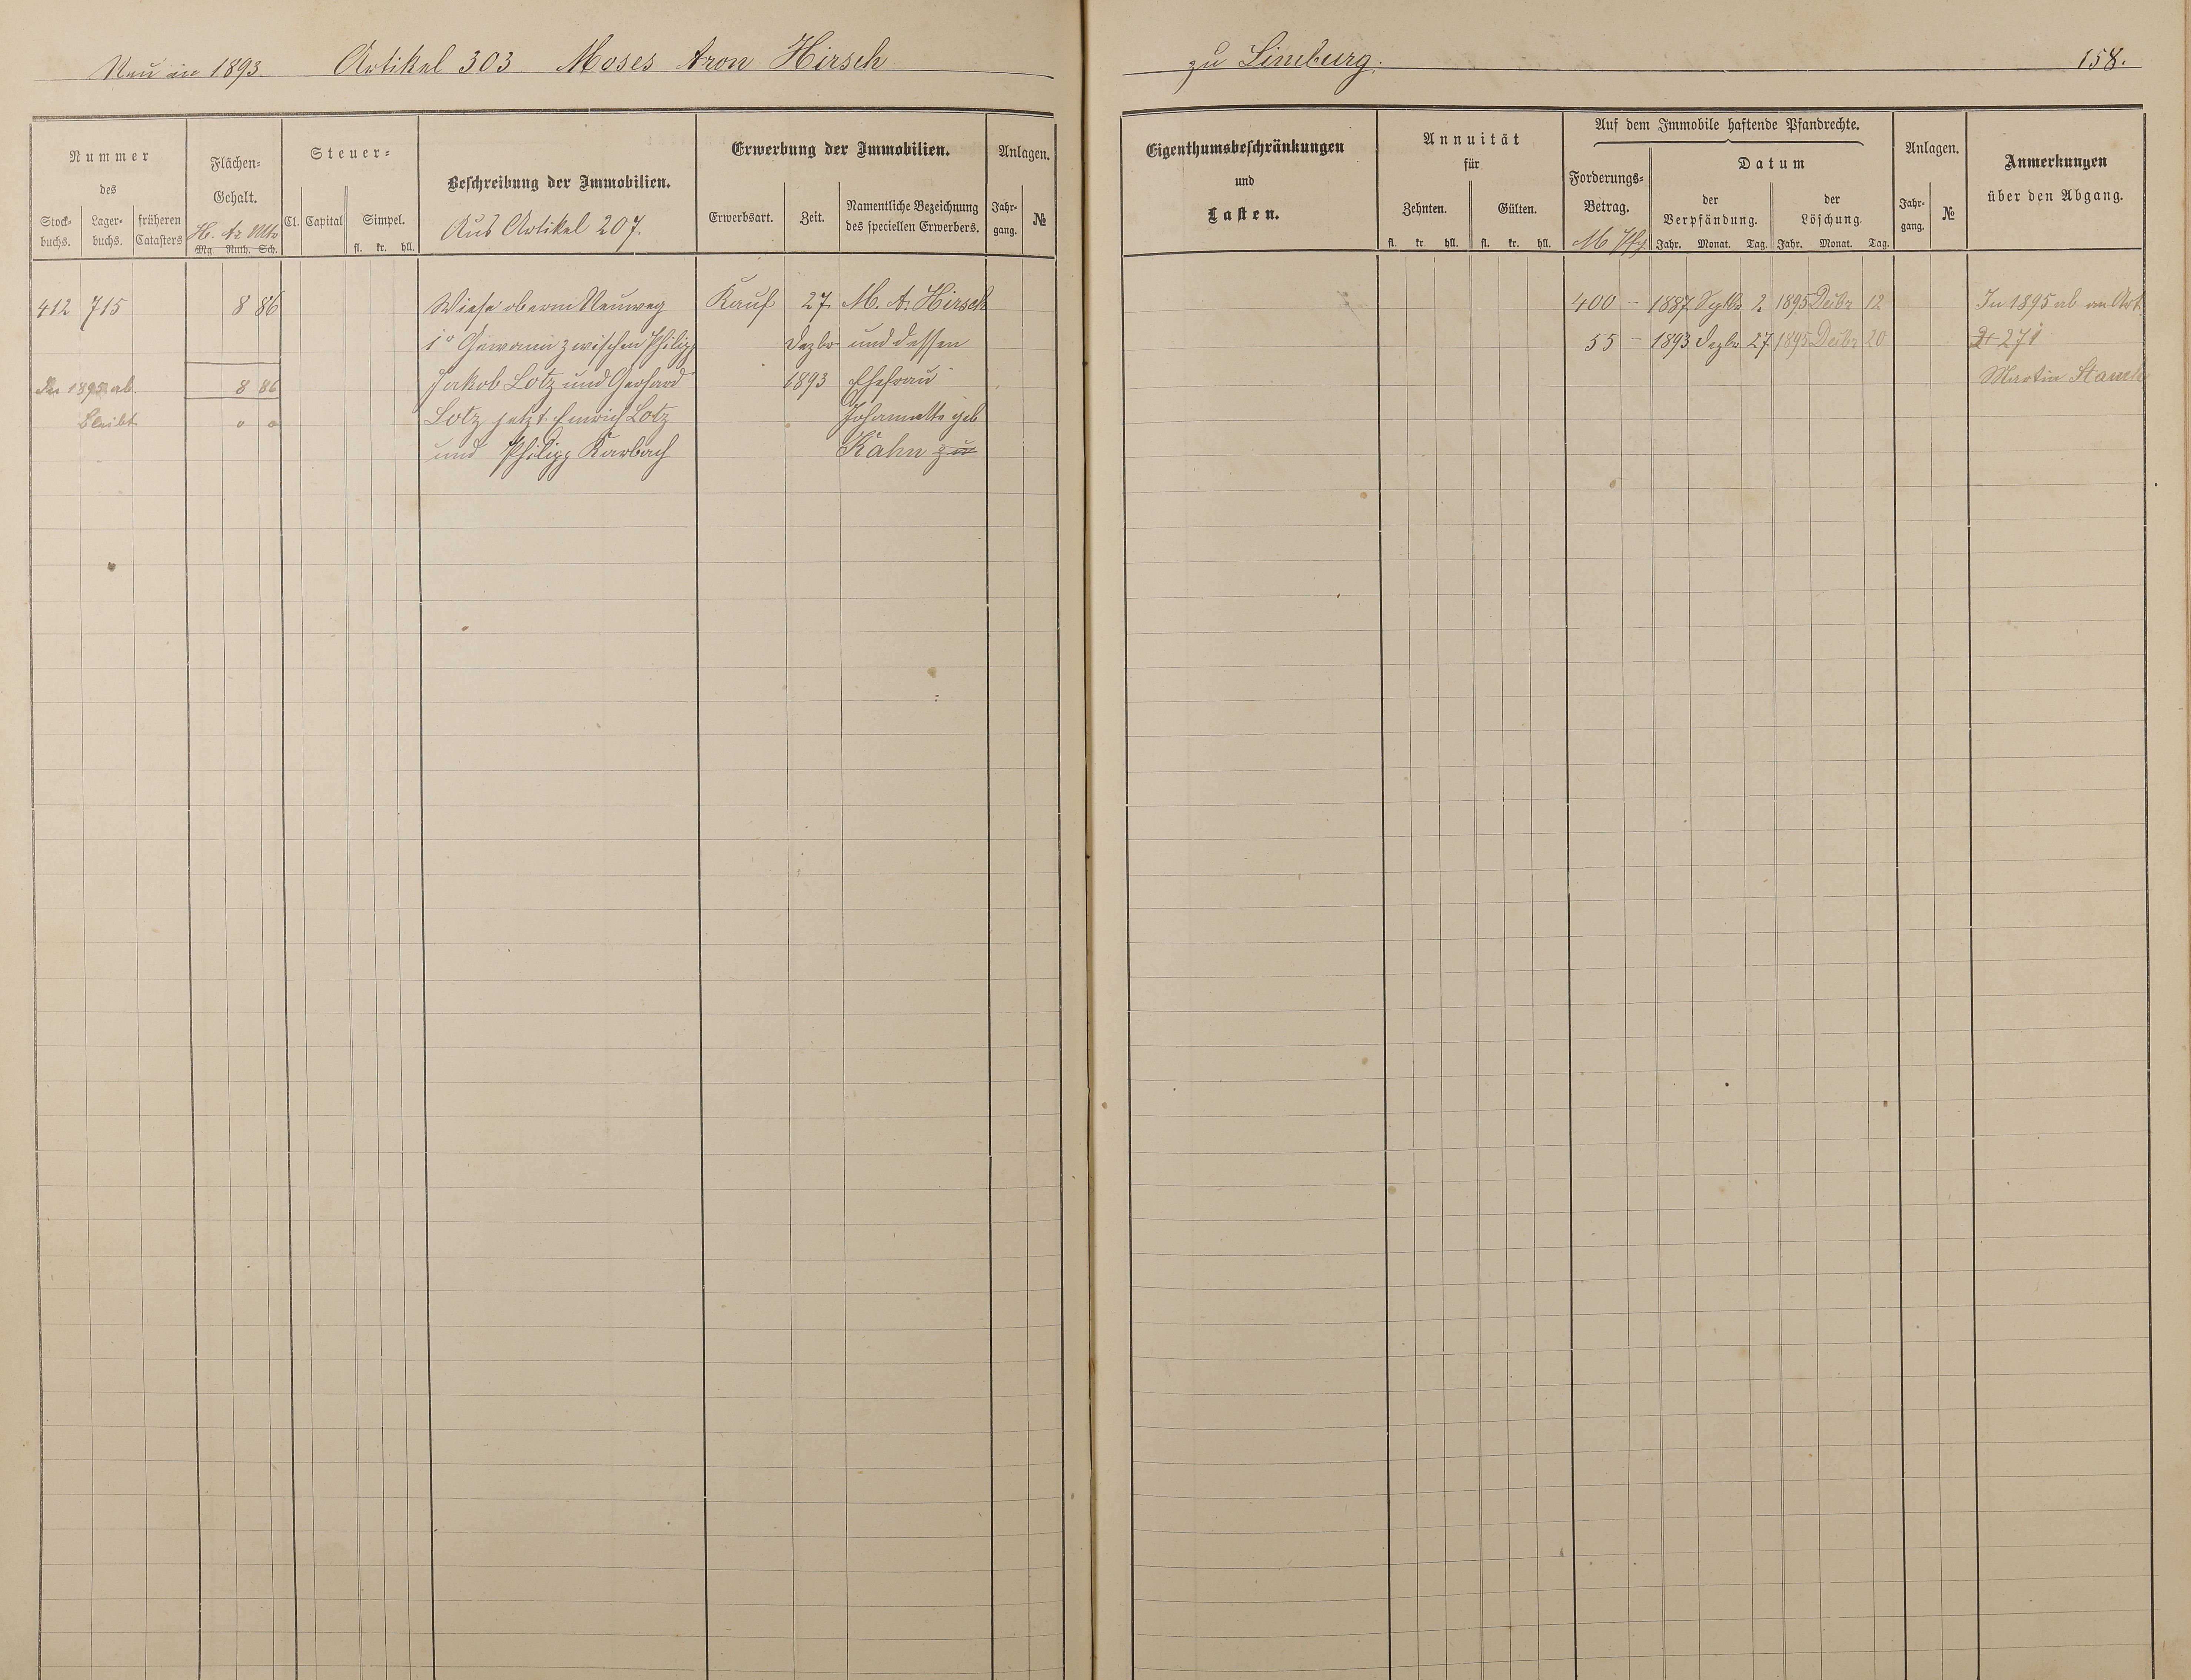 Neu in 1893 Artikel 303 Moses Aron Hirsch
zu Limburg. 158.
Nummer
des
Stock-
buchs.
Lager-
buchs.
früheren
Catasters
Flächen-
Gehalt.
H. Ar Mtr
Mg. Ruth. Sch.
Steuer-
Cl. Capital Simpel.
fl. kr. hll.
Beschreibung der Immobilien.
Aus Artikel 207
Erwerbung der Immobilien.
Erwerbsart. Zeit.
Namentliche Bezeichnung
des speciellen Erwerbers.
Anlagen.
Jahr-
gang.
№
Eigenthumsbeschränkungen
und
Lasten.
Annuität
für
Zehnten. Gülten.
fl. kr. hll. fl. kr. hll.
Auf dem Immobile haftende Pfandrechte.
Forderungs-
Betrag.
M Pfg
Datum
der
Verpfändung.
Jahr. Monat. Tag.
der
Löschung.
Jahr. Monat. Tag.
Anlagen.
Jahr-
gang.
№
Anmerkungen
über den Abgang.
412 715 8 86 Wiese oberm Neuweg Kauf 27 M. A. Hirsch
1r Gewann zwischen Philipp Dezbr und dessen
In 1895 ab. 8 86 Jakob Lotz und Gerhard 1893 Ehefrau
bleibt 0 0 Lotz jetzt Emrich Lotz Johannette geb
und Philipp Karbach Kahn zu
400 - 1887 Septbr 2 1895 Dezbr 12 In 1895 ab an Art.
55 - 1893 Dezbr 27 1895 Dezbr 20 271
Martin